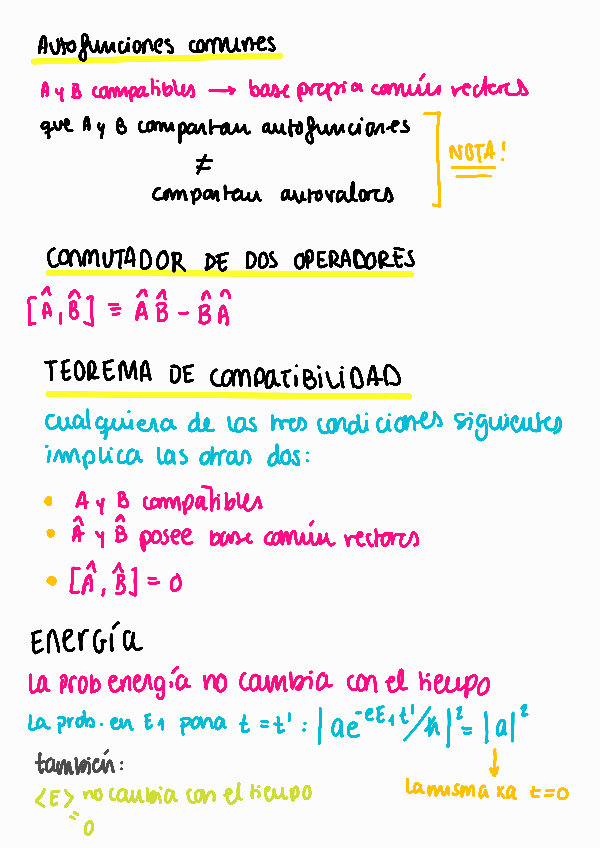 Autofunciones comunes
A y B compatibles → base propia común vectores
que A y B compartan autofunciones
≠
compartan autovalores
NOTA!
CONMUTADOR DE DOS OPERADORES
[Â, B̂] ≡ Â B̂ - B̂ Â
TEOREMA DE COMPATIBILIDAD
Cualquiera de las tres condiciones siguientes
implica las otras dos:
• A y B compatibles
• Â y B̂ posee base común vectores
• [Â, B̂] = 0
Energía
La prob energía no cambia con el tiempo
La prob. en E1 para t = t' : |ae^-eE₁t'/ħ|² = |a|²
también:
La misma xa t=0
<E> no cambia con el tiempo
=
0